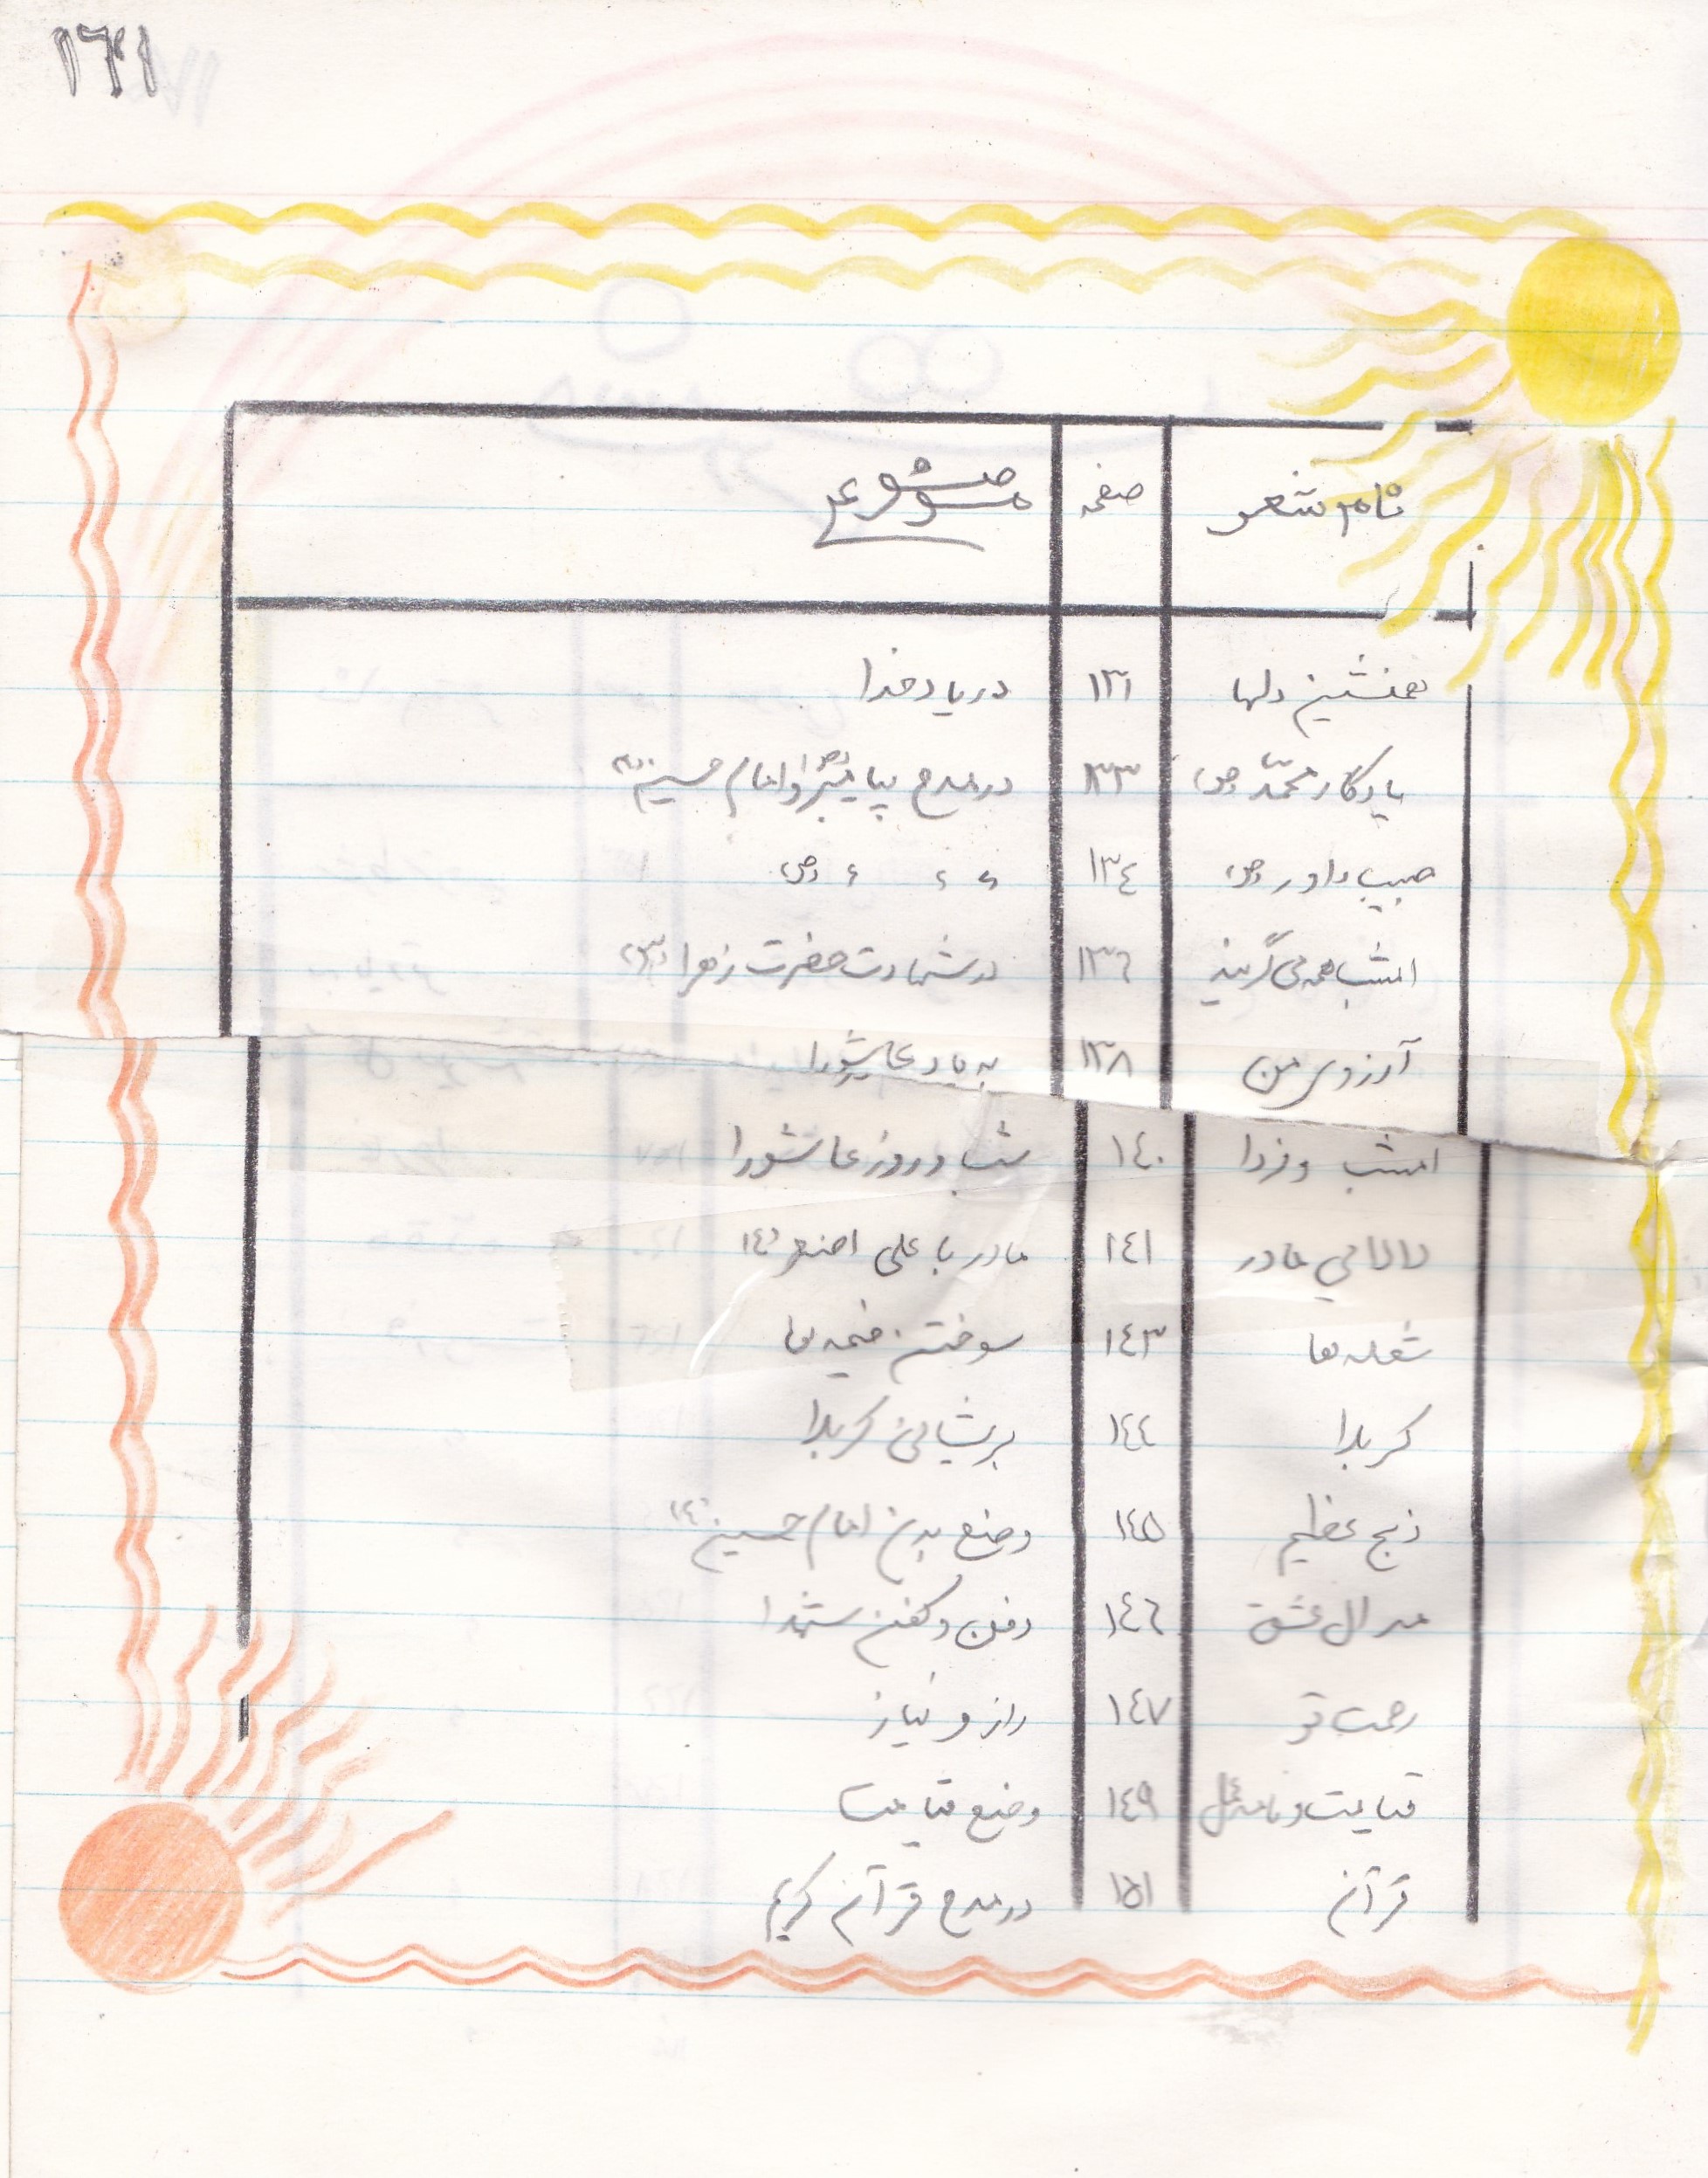 نام شعر صفحه موضوع
همنشین دلها ۱۳۱ در یاد خدا
یادگار محمّد (ص) ۱۳۳ در مدح پیامبر (ص) و امام حسین (ع)
حبیب داور (ص) ۱۳٤ ء ء ء (ص)
امشب همه می گریند ۱۳٦ در شهادت حضرت زهرا (س)
آرزوی من ۱۳۸ به یاد عاشورا
امشب و فردا ۱٤۰ شب و روز عاشورا
لالایی مادر ۱٤۱ مادر با علی اصغر (ع)
شعله ها ۱٤۳ سوختن خیمه ها
کربلا ۱٤٤ پریشانی کربلا
ذبح عظیم ۱٤۵ وضع بدن امام حسین (ع)
مدال عشق ۱٤٦ دفن و کفن شهدا
رحمت تو ۱٤۷ راز و نیاز
قیامت و نامه عمل ۱٤۹ وضع قیامت
قرآن ۱۵۱ در مدح قرآن کریم